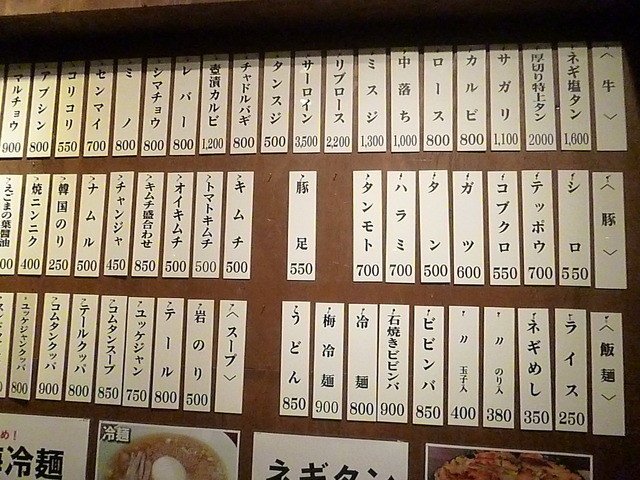 〈牛〉
ネギ塩タン 1,600
厚切り特上タン 2000
サガリ 1,100
カルビ 800
ロース 800
中落ち 1,000
ミスジ 1,300
リブロース 2,200
サーロイン 3,500
タンスジ 500
チャドルバギ 800
壺漬カルビ 1,200
レバー 800
シマチョウ 800
ミノ 800
センマイ 700
コリコリ 550
アブシン 800
マルチョウ 900
〈豚〉
シロ 550
テッポウ 700
コブクロ 550
ガツ 600
タン 500
ハラミ 700
タンモト 700
豚足 550
キムチ 500
トマトキムチ 500
オイキムチ 500
キムチ盛合わせ 850
チャンジャ 450
ナムル 500
韓国のり 250
焼ニンニク 400
えごまの葉醤油
〈飯麺〉
ライス 250
ネギめし 350
〃 のり入 380
〃 玉子入 400
ビビンバ 850
石焼きビビンバ 900
冷麺 800
梅冷麺 900
うどん 850
〈スープ〉
岩のり 500
テール 800
ユッケジャン 750
コムタンスープ 850
テールクッパ 800
コムタンクッパ 900
ユッケジャンクッパ 800
め!
冷麺
冷麺
ネギタン